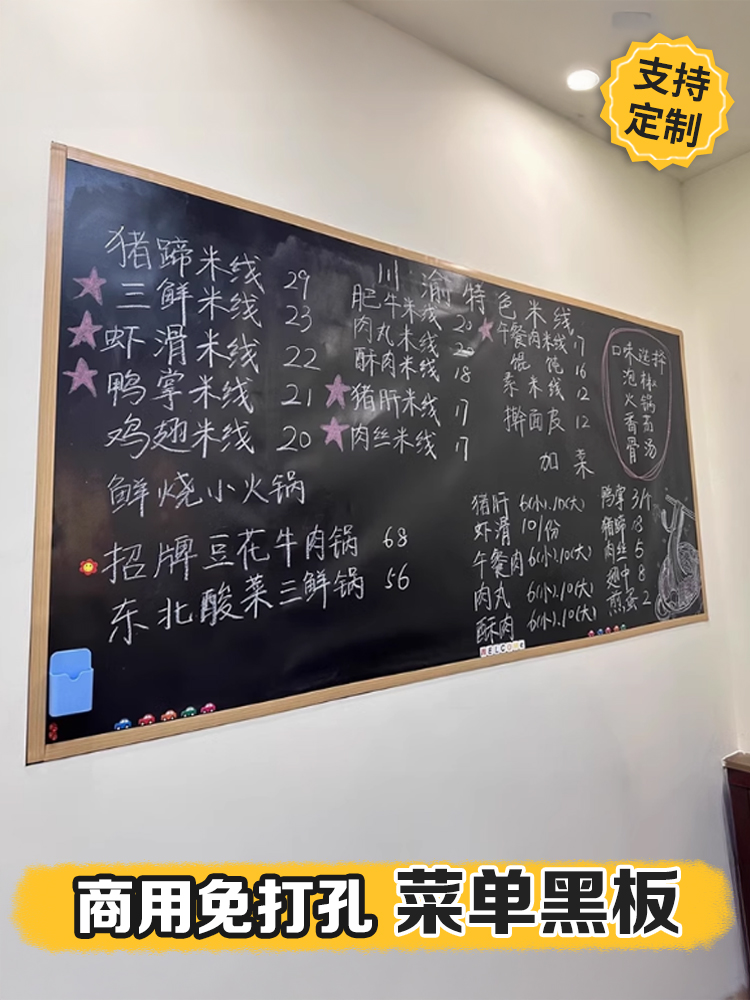 支持
定制
川渝特色米线
猪蹄米线 29
三鲜米线 23
虾滑米线 22
鸭掌米线 21
鸡翅米线 20
鲜烧小火锅
招牌豆花牛肉锅 68
东北酸菜三鲜锅 56
肥牛米线 20
肉丸米线 20
酥肉米线 18
猪肝米线 17
肉丝米线 17
午餐肉米线 17
馄饨 16
素米线 12
擀面皮 12
口味选择
泡椒
火锅
香菇
骨汤
加菜
猪肝 6(小).10(大)
虾滑 10/份
午餐肉 6(小).10(大)
肉丸 6(小).10(大)
酥肉 6(小).10(大)
鸭掌 3/个
猪蹄 18
肉丝 5
翅中 8
煎蛋 2
WELCOME
商用免打孔 菜单黑板